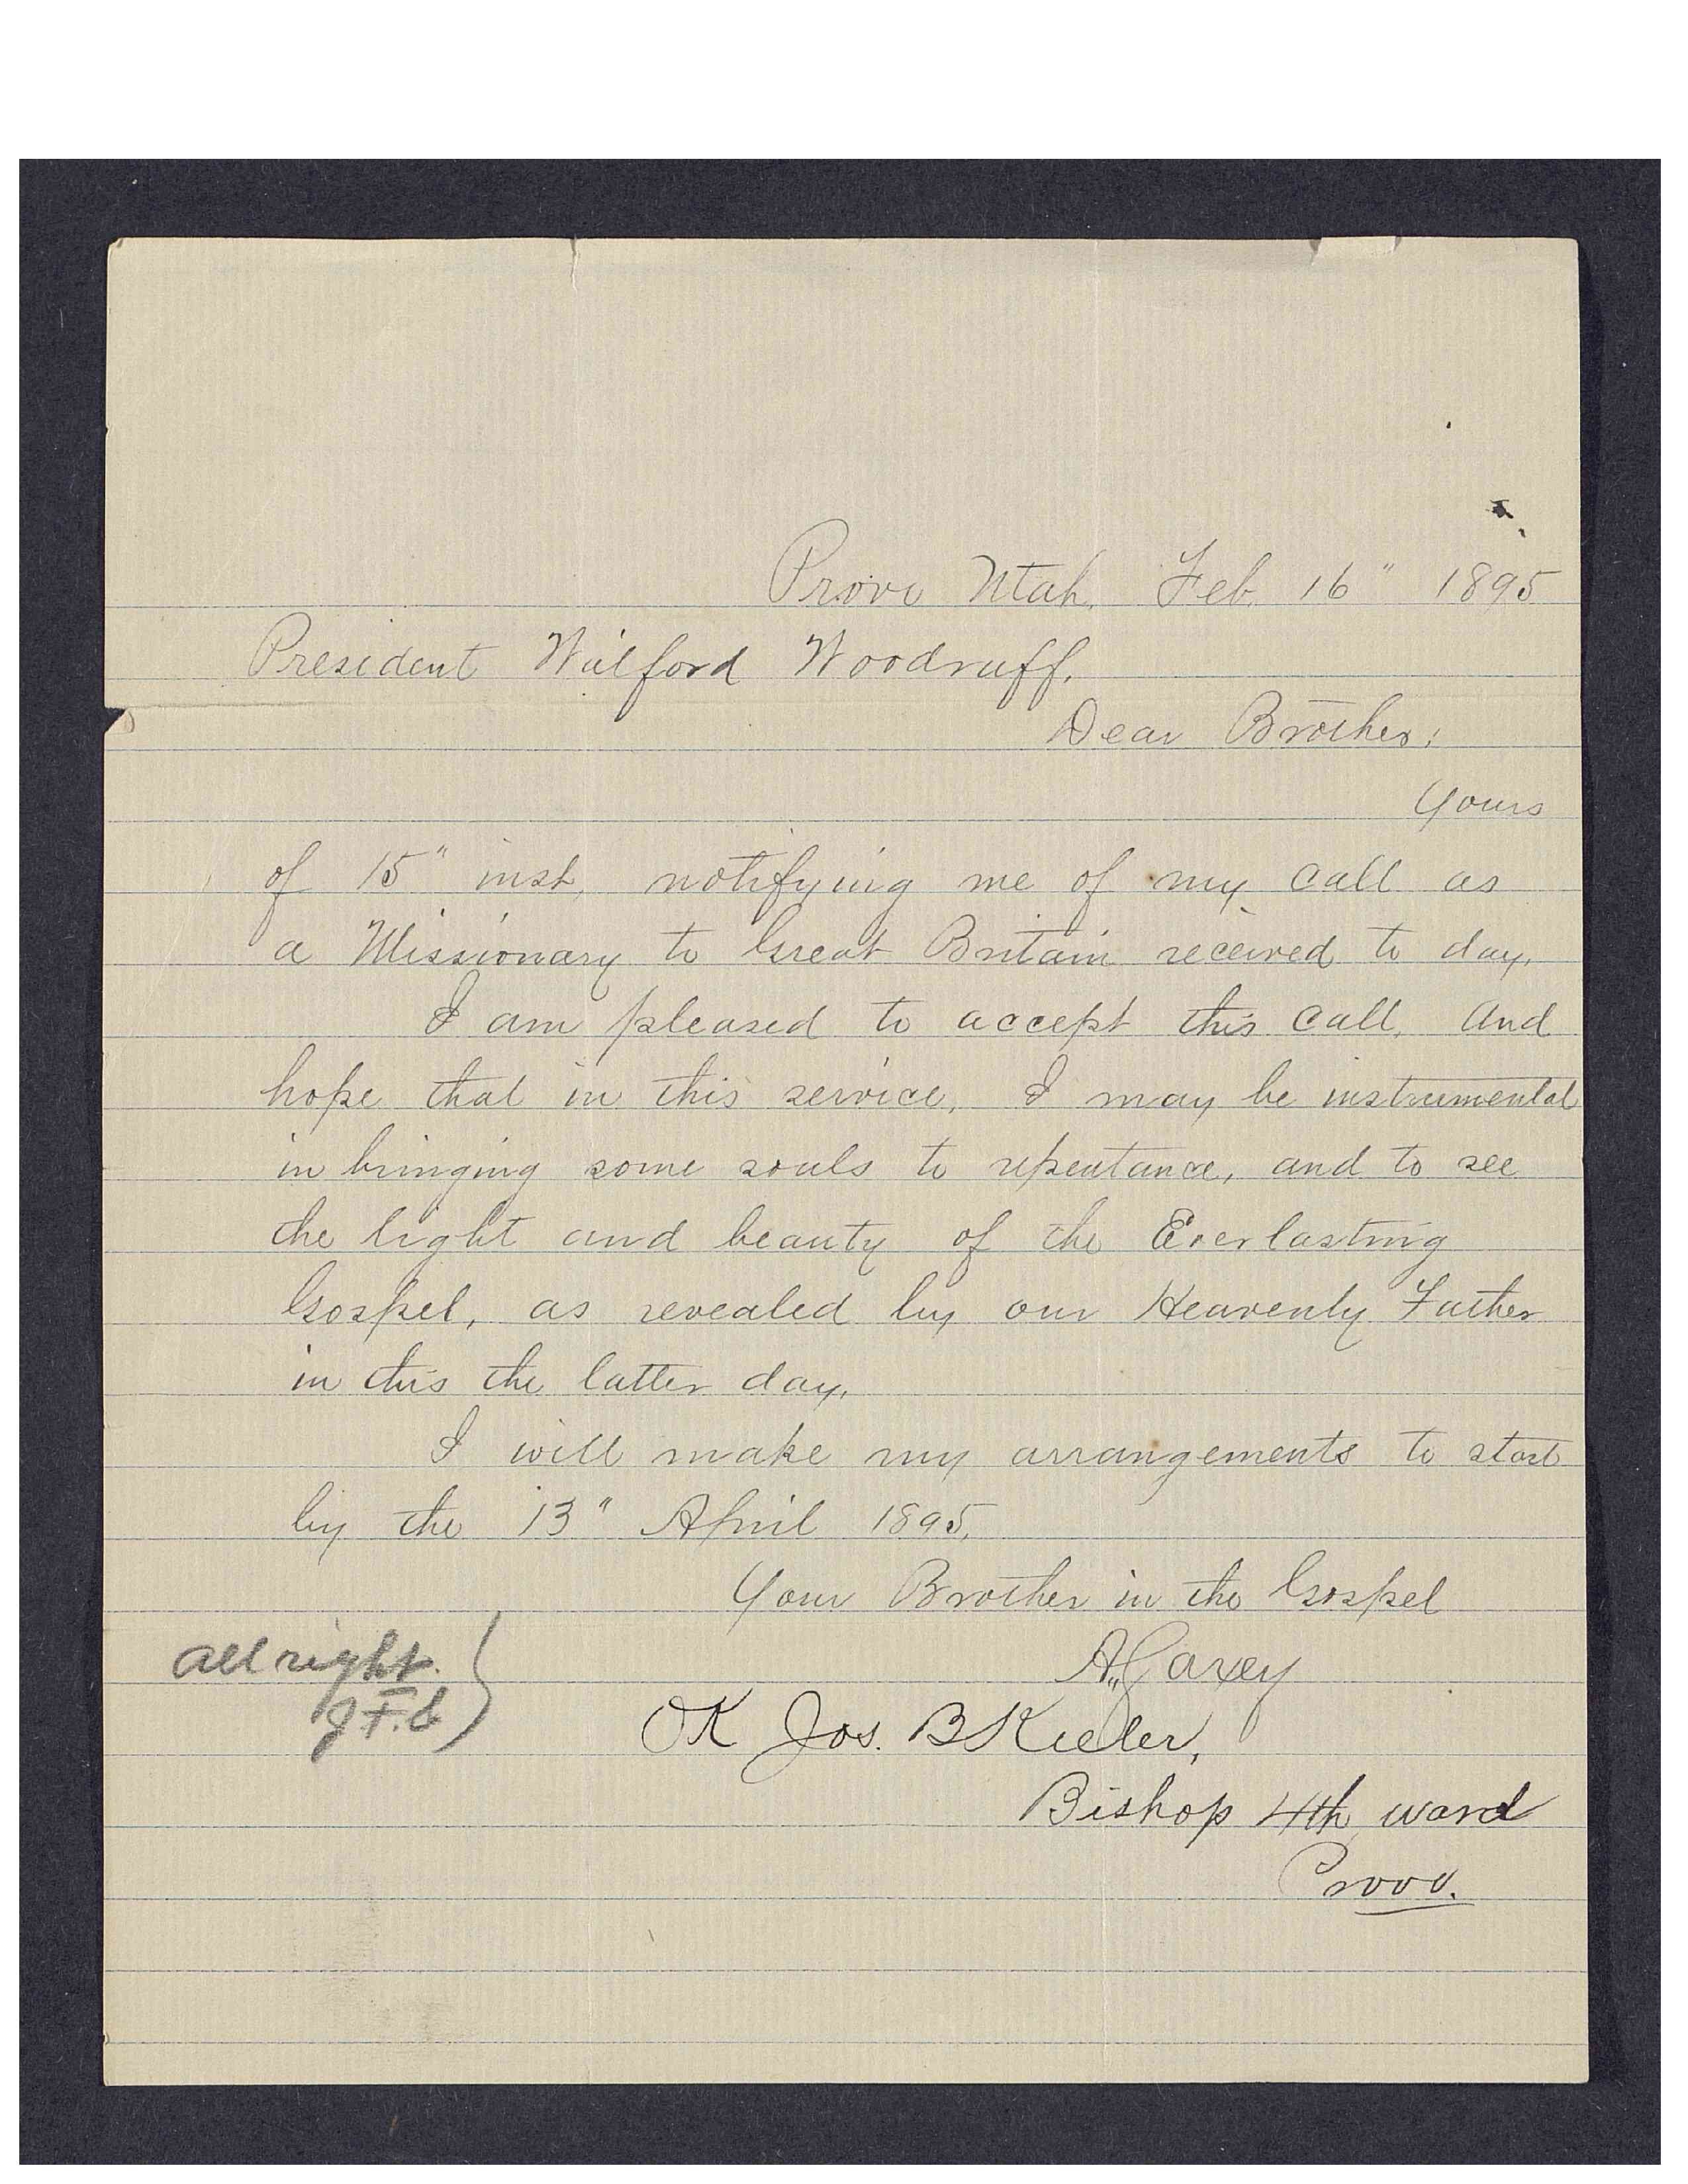 Provo Utah, Feb. 16" 1895
President Wilford Woodruff.
Dear Brother:
Yours
of 15" inst, notifying me of my call as
a Missionary to Great Britain received to day.
I am pleased to accept this call. And
hope that in this service, I may be instrumental
in bringing some souls to repentance, and to see
the light and beauty of the Everlasting
Gospel, as revealed by our Heavenly Father
in this the latter day.
I will make my arrangements to start
by the 13" April 1895.
Your Brother in the Gospel
A.
all right.
J F. S
OK Jos. B Keeler,
Bishop 4th ward
Provo.